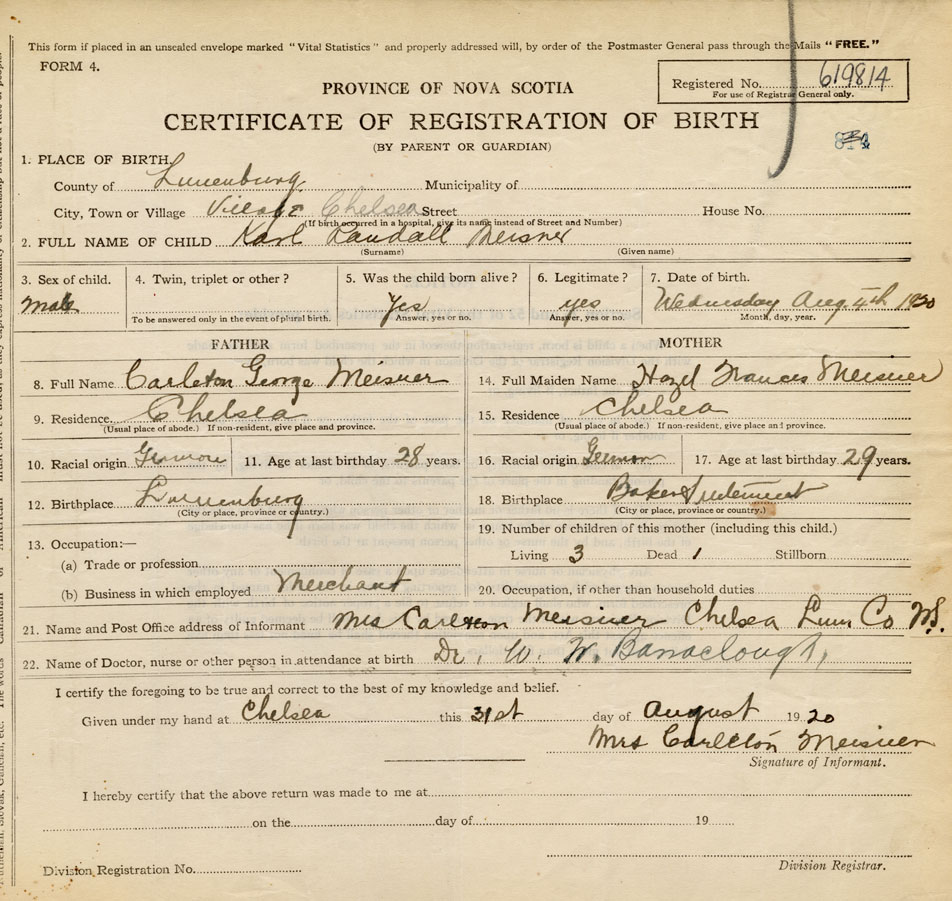 This form if placed in an unsealed envelope marked "Vital Statistics" and properly addressed will, by order of the Postmaster General pass through the Mails "FREE."
FORM 4.
Registered No. 619814
For use of Registrar General only.
PROVINCE OF NOVA SCOTIA
CERTIFICATE OF REGISTRATION OF BIRTH
(BY PARENT OR GUARDIAN)
1. PLACE OF BIRTH.
County of Lunenburg Municipality of
City, Town or Village Village Chelsea Street House No.
(If birth occurred in a hospital, give its name instead of Street and Number)
2. FULL NAME OF CHILD Karl Randall Meisner
(Surname) (Given name)
3. Sex of child. 4. Twin, triplet or other? 5. Was the child born alive? 6. Legitimate? 7. Date of birth.
Male Yes yes Wednesday Aug. 4th 1920
To be answered only in the event of plural birth. Answer, yes or no. Answer, yes or no. Month, day, year.
FATHER
8. Full Name Carleton George Meisner
9. Residence. Chelsea
(Usual place of abode.) If non-resident, give place and province.
10. Racial origin German 11. Age at last birthday 28 years.
12. Birthplace Lunenburg
(City or place, province or country.)
13. Occupation:—
(a) Trade or profession
(b) Business in which employed Merchant
MOTHER
14. Full Maiden Name Hazel Frances Meisner
15. Residence Chelsea
(Usual place of abode.) If non-resident, give place and province.
16. Racial origin German 17. Age at last birthday 29 years.
18. Birthplace Baker Settlement
(City or place, province or country.)
19. Number of children of this mother (including this child.)
Living 3 Dead 1 Stillborn
20. Occupation, if other than household duties
21. Name and Post Office address of Informant Mrs Carleton Meisner Chelsea Lun Co N.S.
22. Name of Doctor, nurse or other person in attendance at birth Dr. W. W. Barraclough,
I certify the foregoing to be true and correct to the best of my knowledge and belief.
Given under my hand at Chelsea this 31st day of August 1920
Mrs Carleton Meisner
Signature of Informant.
I hereby certify that the above return was made to me at
on the day of 19
Division Registration No.
Division Registrar.